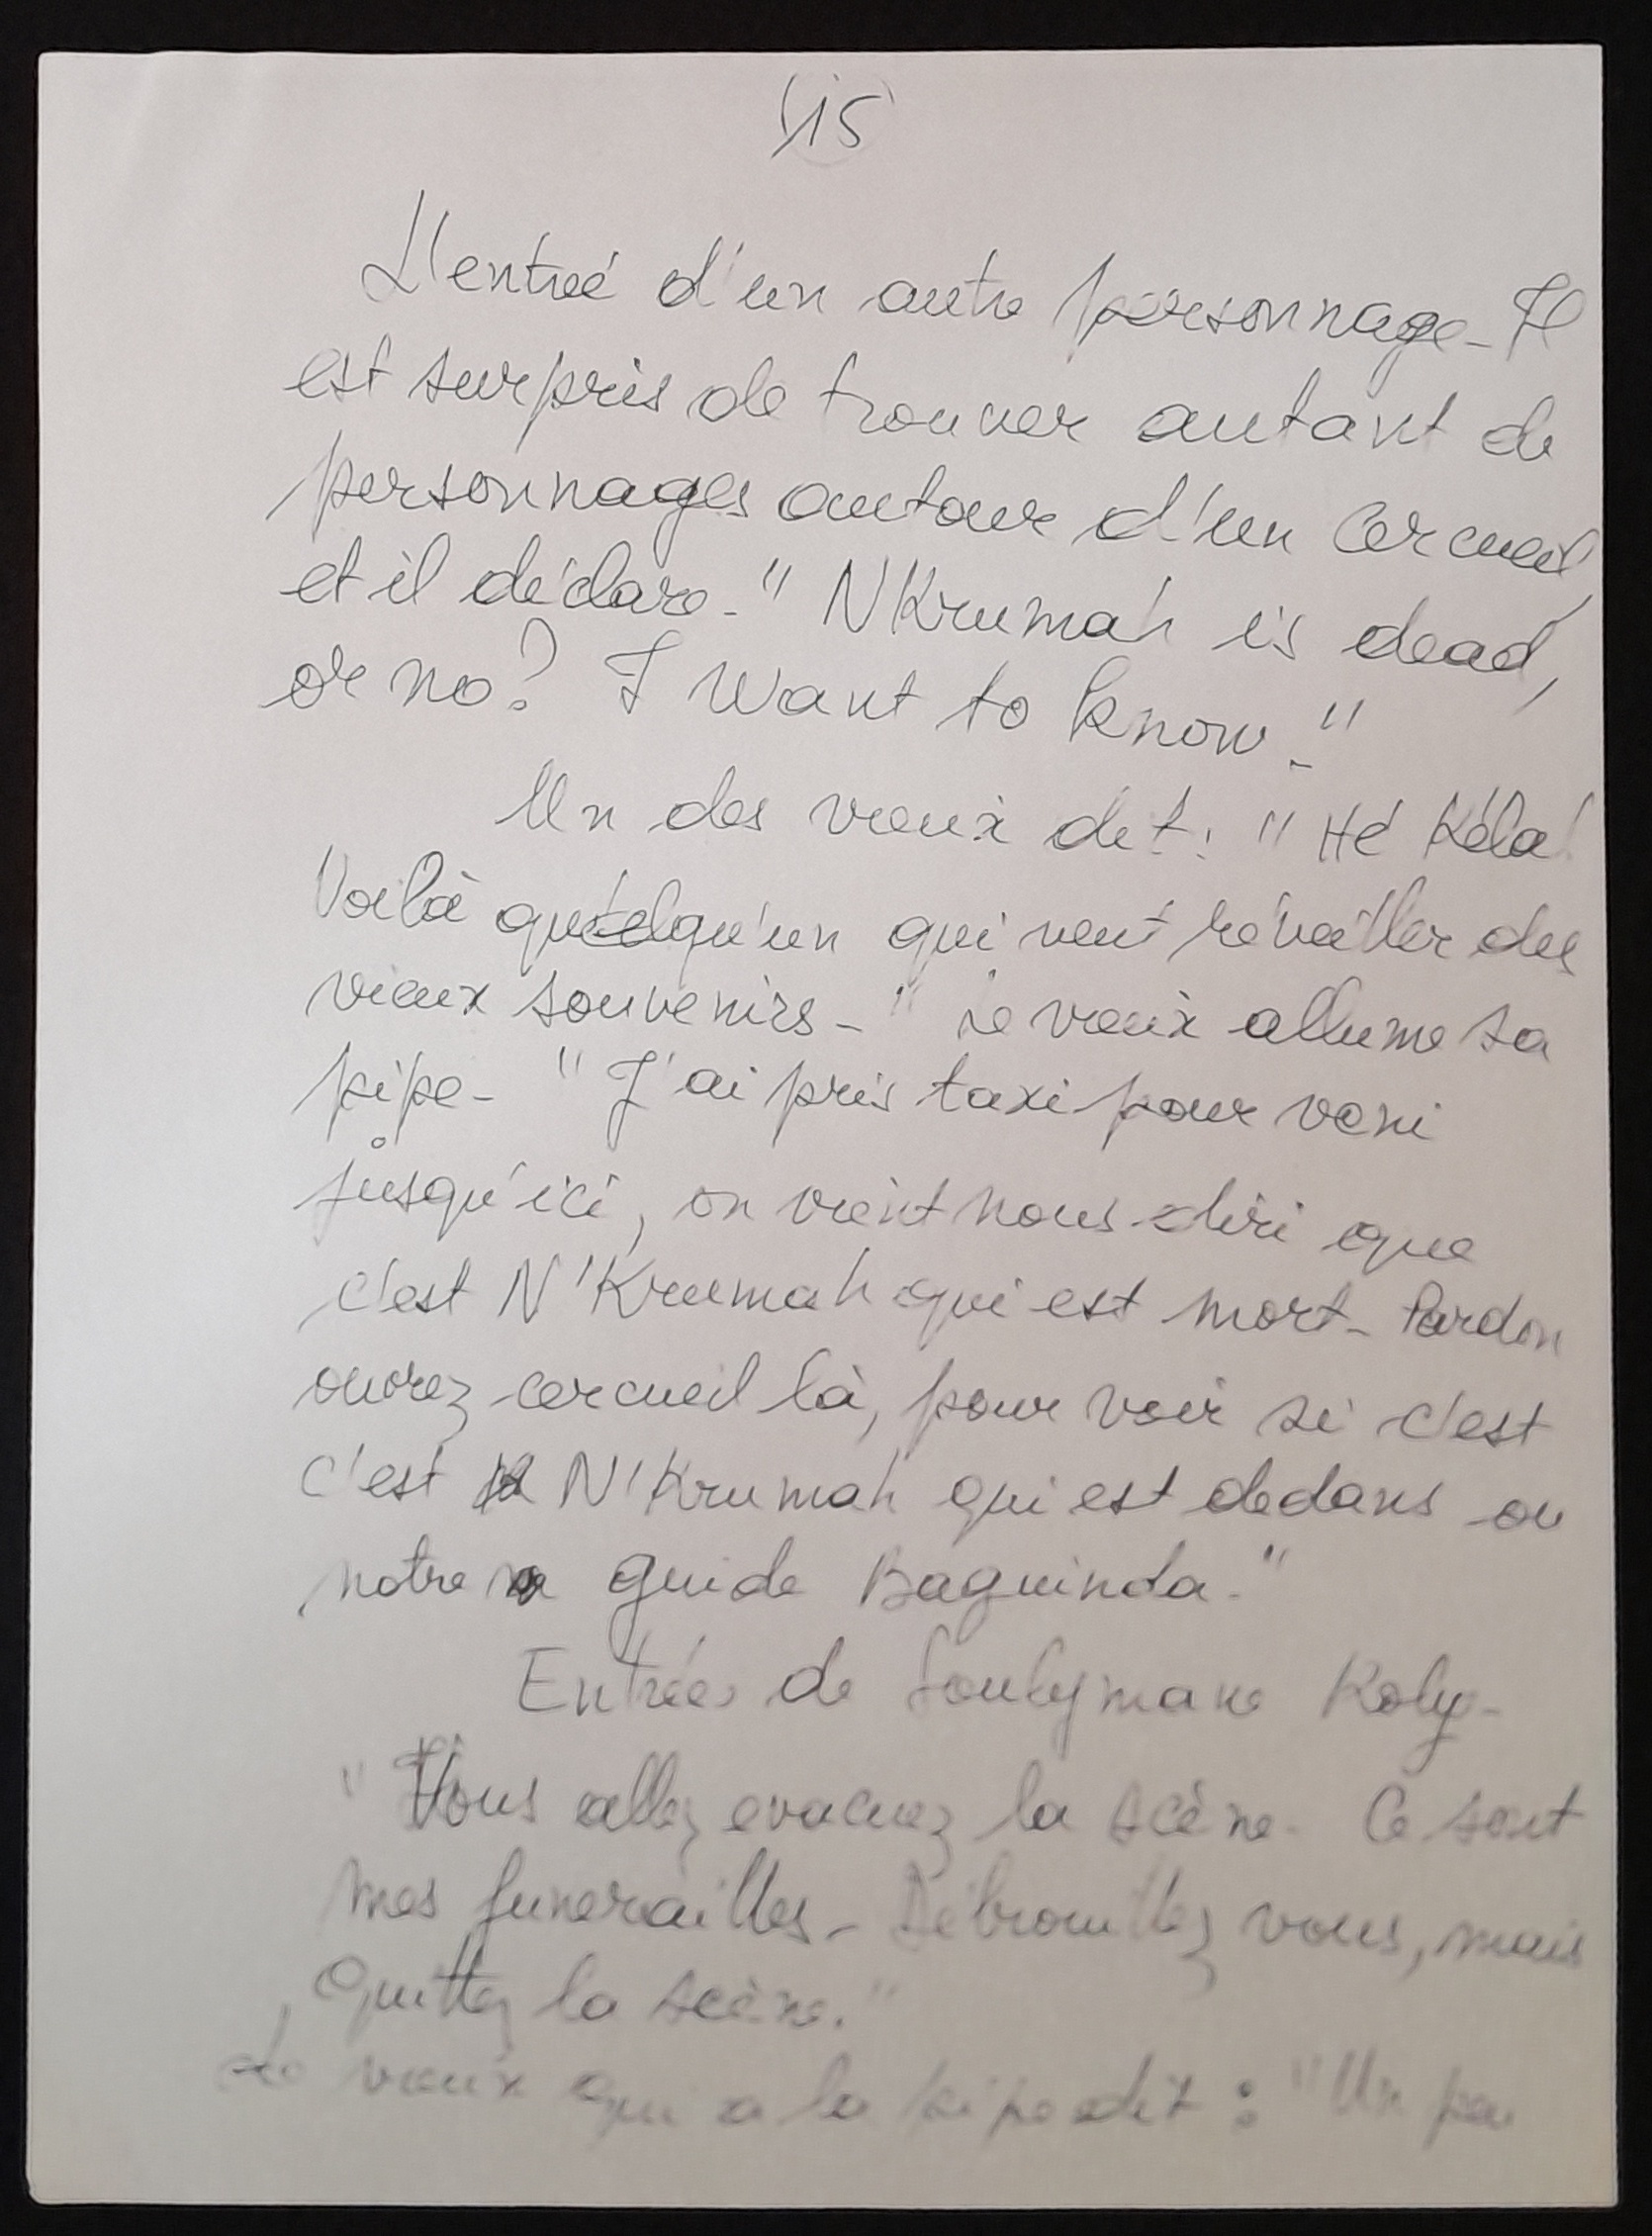 15
L'entrée d'un autre personnage - Il
est surpris de trouver autant de
personnages autour d'un cercueil,
et il déclare - " NKrumah is dead,
or no? I want to know - "
Un des vieux dit : " Hé Kéla!
Voilà quelqu'un qui veut réveiller des
vieux souvenirs - " Le vieux allume sa
pipe - " J'ai pris taxi pour veni
jusqu'ici, on vient nous diri que
c'est N'Krumah qui est mort - Pardon
ouvrez cercueil là, pour voir si c'est
c'est N'Krumah qui est dedans ou
notre guide Baguinda. "
Entrée de Souleymane Koly -
" Vous allez evacuez la scène - Ce sont
mes funerailles - Débrouillez vous, mais
quittez la scène. "
Le vieux qui a la pipe dit : " Un peu